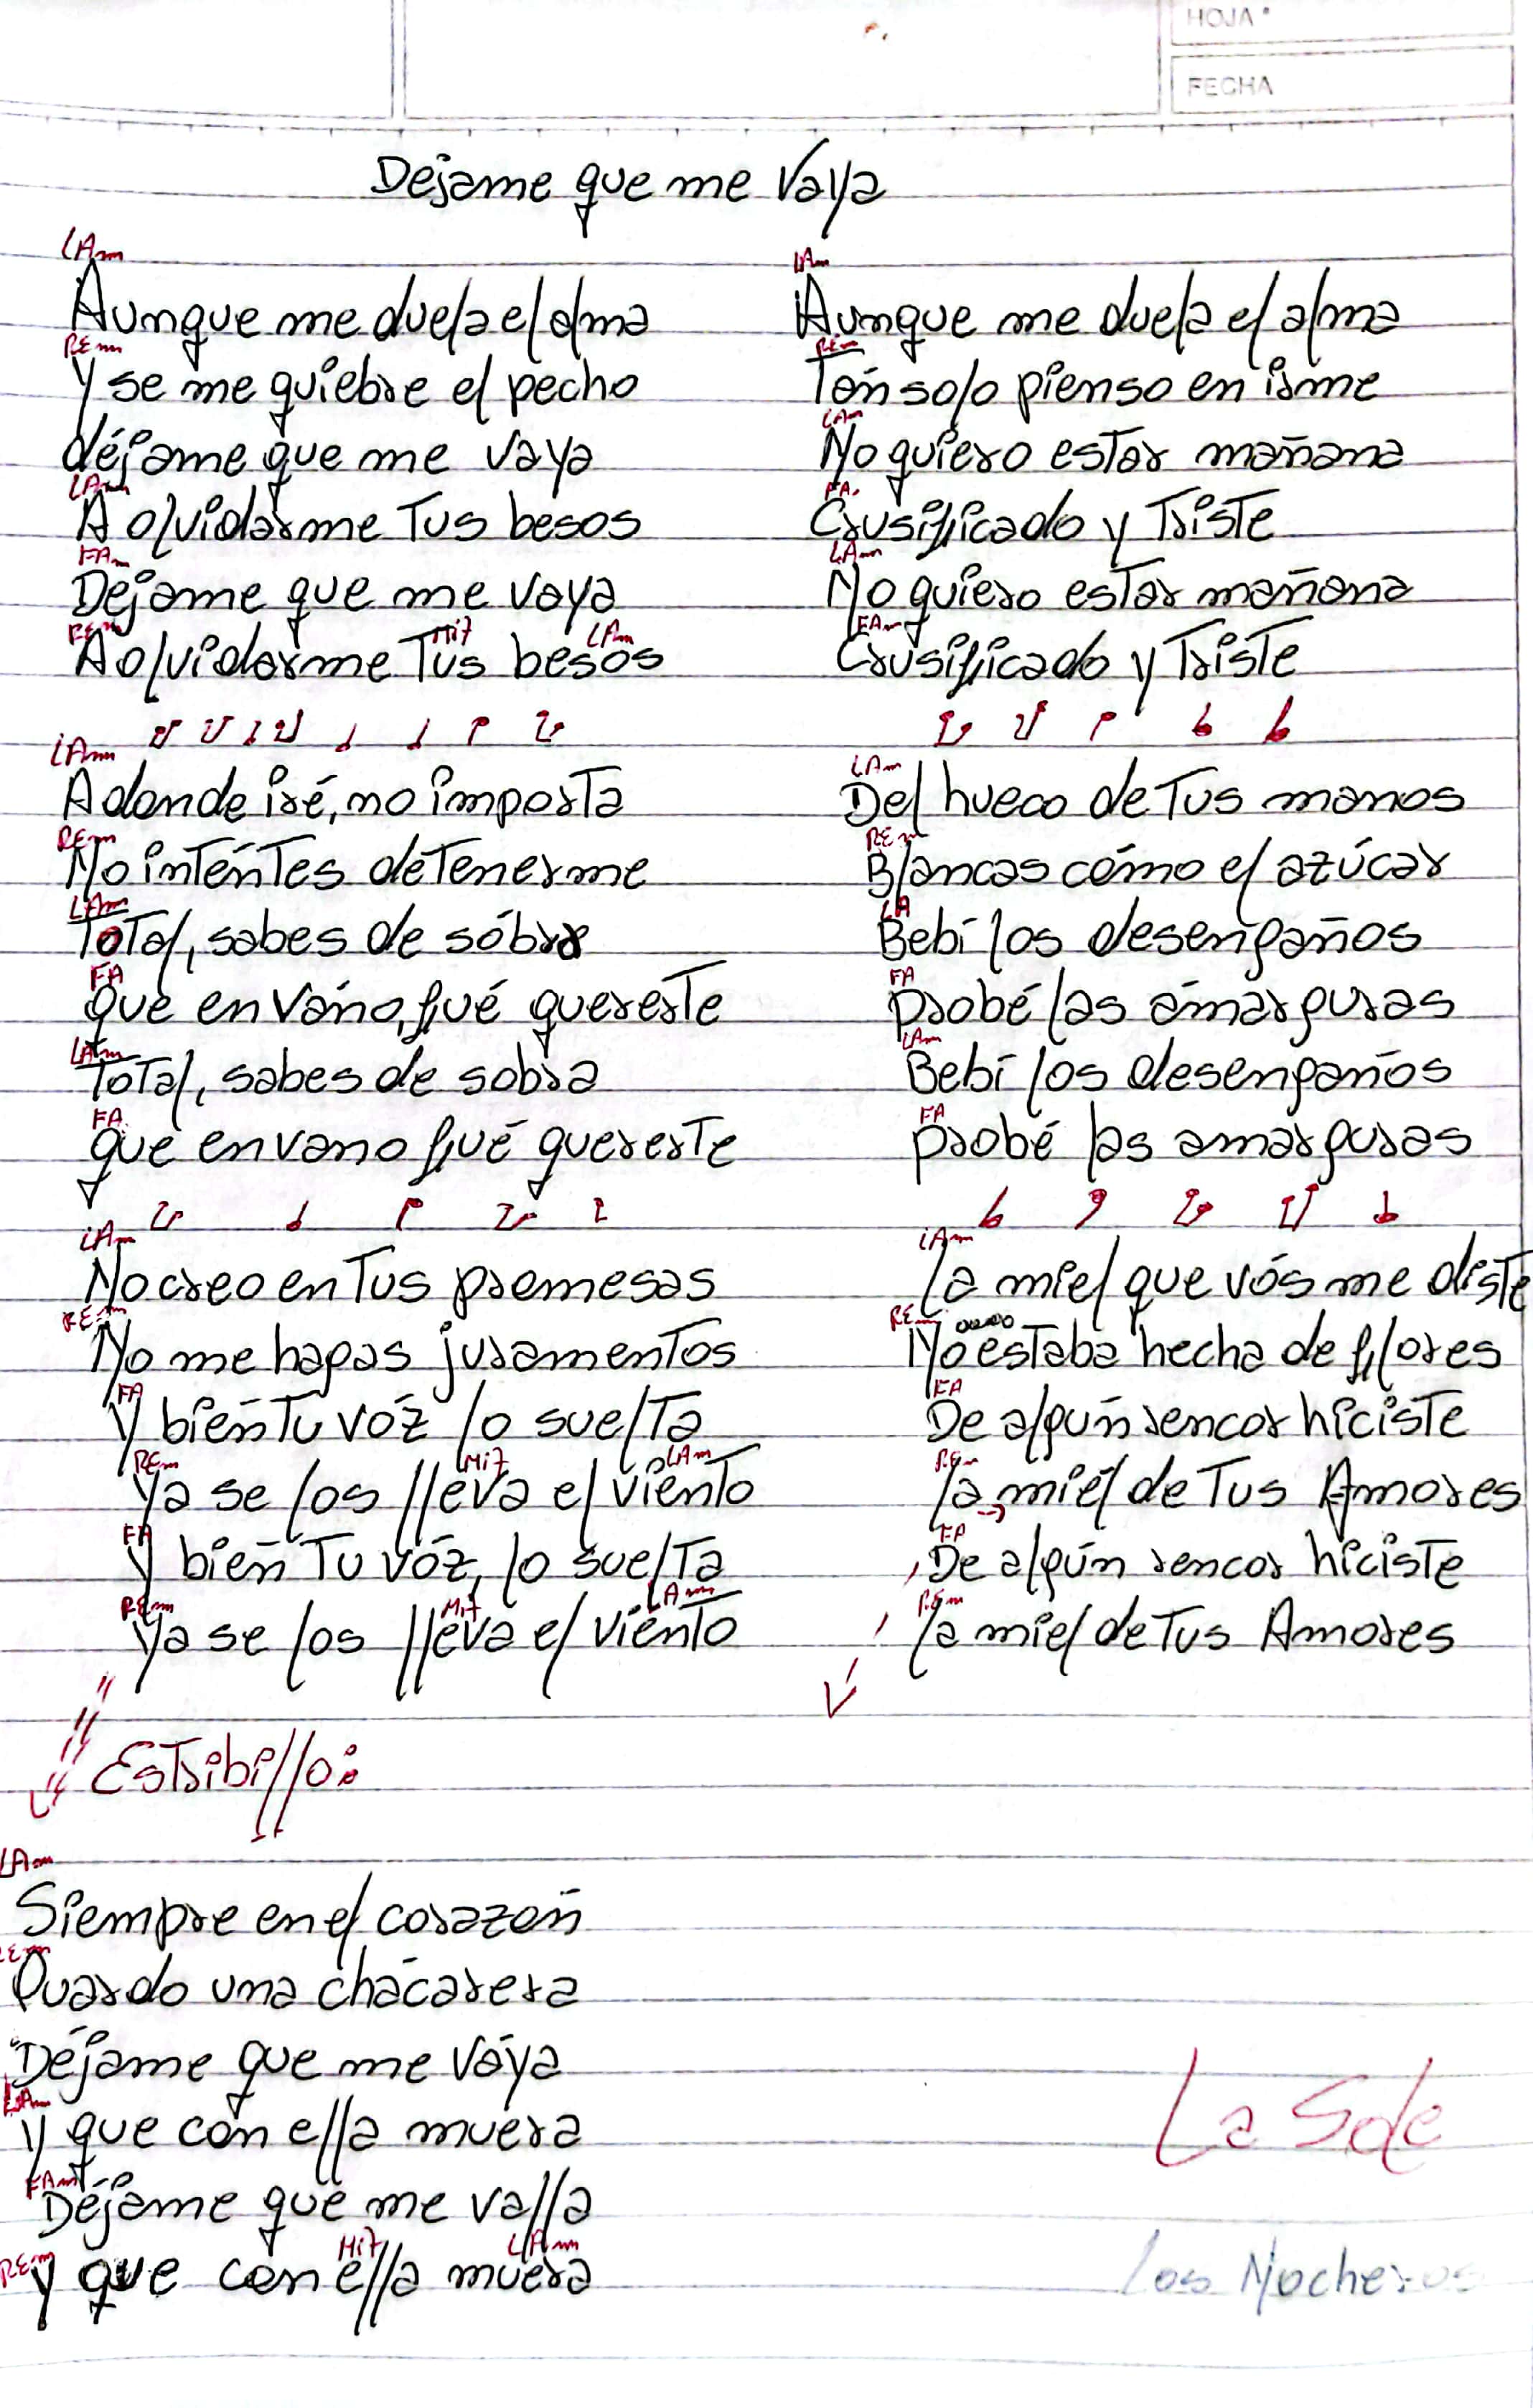 HOJA
FECHA
Dejame que me Vaya
LAm
Aunque me duela el alma
REm
Y se me quiebre el pecho
déjame que me vaya
LAm
A olvidarme Tus besos
FAm
Dejame que me vaya
REm Mi7 LAm
A olvidarme Tus besos
LAm
A donde iré, no importa
REm
No intentes detenerme
LAm
Total, sabes de sobra
FA
que en vano, fué quererte
LAm
Total, sabes de sobra
FA
que en vano fué quererte
LAm
No creo en Tus promesas
REm
No me hagas juramentos
FA
Y bien Tu voz lo suelta
REm Mi7 LAm
Ya se los lleva el viento
FA
Y bien Tu voz, lo suelta
REm Mi7 LAm
Ya se los lleva el viento
Estribillo:
LAm
Siempre en el corazon
REm
Guardo una chacarera
Déjame que me vaya
LAm
Y que con ella muera
FAm
Déjame que me valla
REm Mi7 LAm
Y que con ella muera
LAm
Aunque me duela el alma
REm
Tan solo pienso en irme
LAm
No quiero estar mañana
FA
Crusificado y Triste
LAm
No quiero estar mañana
FAm
Crusificado y Triste
LAm
Del hueco de Tus manos
REm
Blancas cómo el azúcar
LA
Bebí los desengaños
FA
probé las amarguras
LAm
Bebí los desengaños
FA
probé las amarguras
LAm
La miel que vós me diste
REm
No estaba hecha de flores
FA
De algún rencor hiciste
REm
la miel de Tus Amores
FA
De algún rencor hiciste
REm
la miel de Tus Amores
La Sole
Los Nocheros